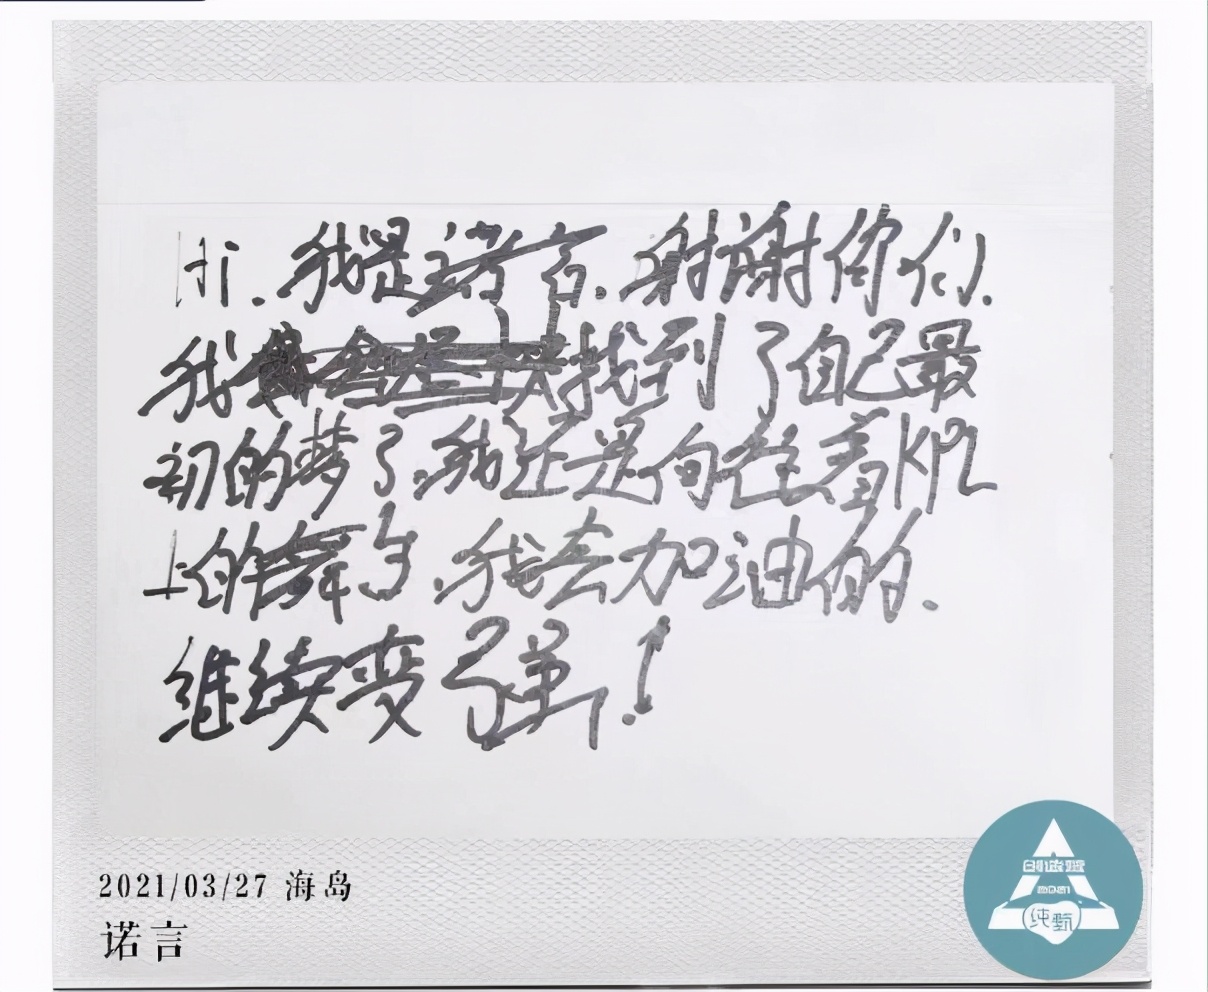 Hi.我是诺言.谢谢你们.
我找到了自己最
初的梦了.我还是向往着KPL
上的舞台.我会加油的.
继续变强!
2021/03/27 海岛
诺言
纯甄